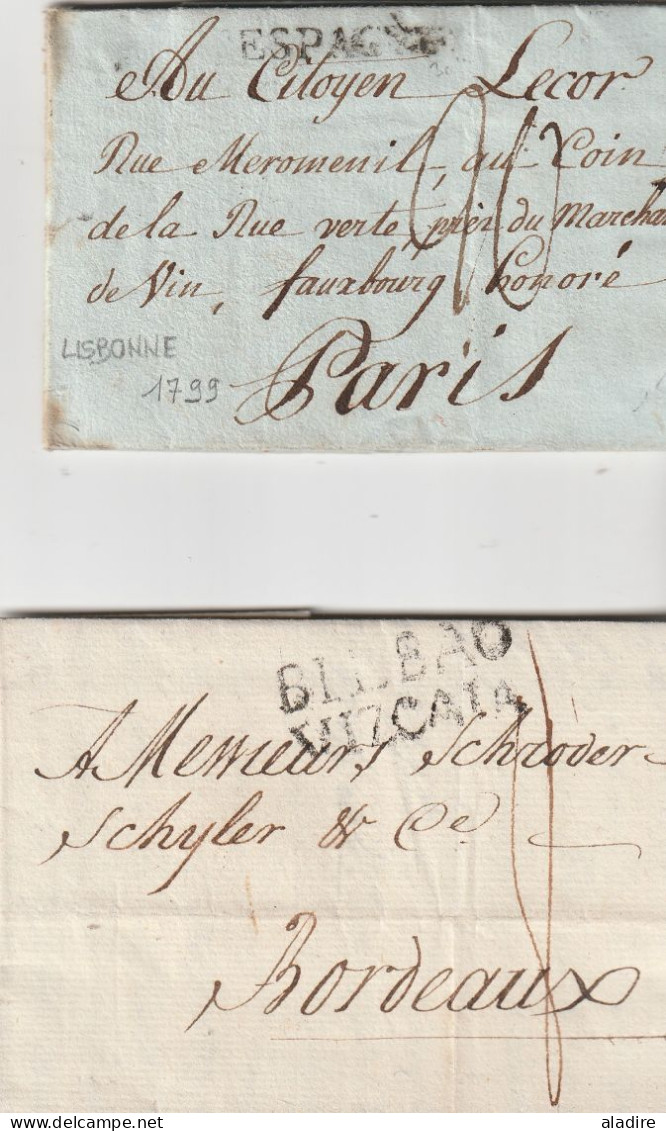 ESPAGNE
Au Citoyen Lecor
Rue Meromenil, au Coin
de la Rue verte, près du Marchan
de Vin, fauxbourg honoré
Paris
LISBONNE
1799
BILBAO
VIZCAIA
A Messieurs Schroder
Schyler & Ce
Bordeaux
Delcampe.net
aladire